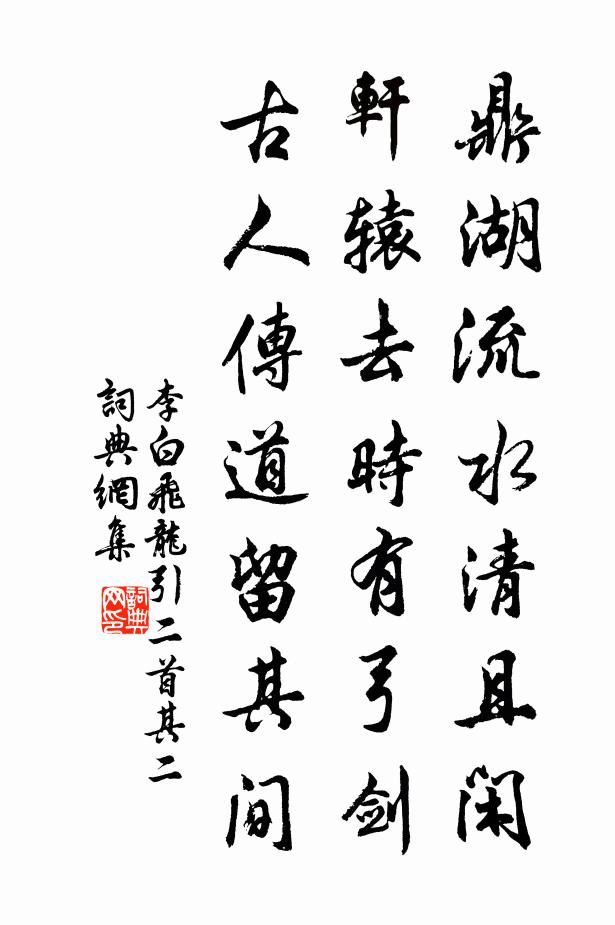 鼎湖流水清且閑
軒辕去時有弓劍
古人傳道留其間
李白飛龍引二首其二
詞典網集
詞典网印